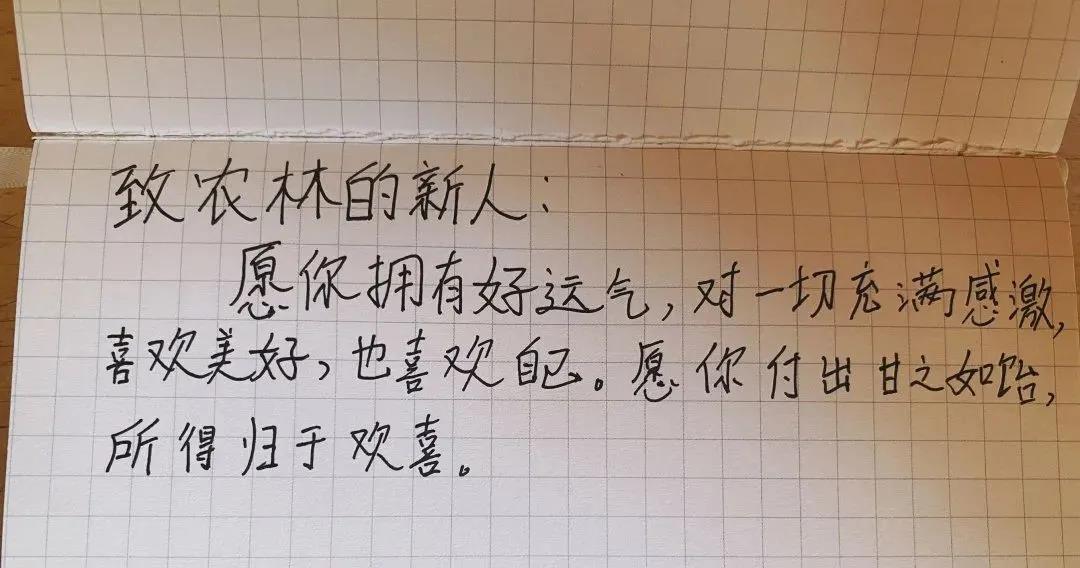 致农林的新人：
愿你拥有好运气，对一切充满感激，
喜欢美好，也喜欢自己。愿你付出甘之如饴，
所得归于欢喜。